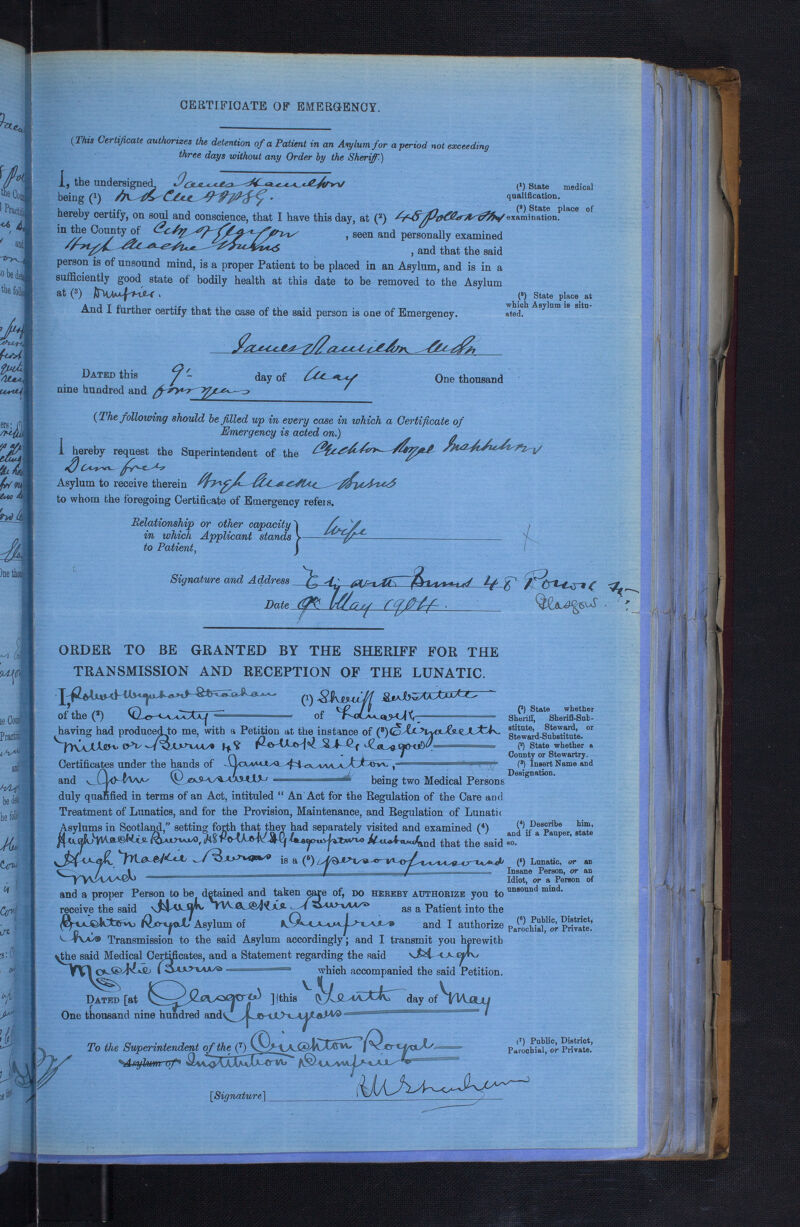 CERTIFICATE OF EMERGENCY.
(This Certificate authorizes the detention of a Patient in an Asylum for a period not exceeding
three days without any Order by the Sheriff.)
I, the undersigned, James Hamilton
being (1)
(1) State medical
qualification.
hereby certify, on soul and conscience, that I have this day, at (2) 48 Pollok St
(2) State place of
examination.
in the County of City of Glasgow , seen and personally examined
Hugh Mackie Burns , and that the said
person is of unsound mind, is a proper Patient to be placed in an Asylum, and is in a
sufficiently good state of bodily health at this date to be removed to the Asylum
at (3) Dumfries.
(3) State place at
which Asylum is situ-
ated.
And I further certify that the case of the said person is one of Emergency.
James Hamilton
DATED this 9th day of May One thousand
nine hundred and four years
(The following should be filled up in every case in which a Certificate of
Emergency is acted on.)
I hereby request the Superintendent of the Crichton Royal Institution
Dumfries
Asylum to receive therein Hugh Mackie Burns
to whom the foregoing Certificate of Emergency refers.
Relationship or other capacity
in which Applicant stands
to Patient,
Wife
Signature and Address Burns 48 Pollok St
Glasgow.
Date 9th May 1904.
ORDER TO BE GRANTED BY THE SHERIFF FOR THE
TRANSMISSION AND RECEPTION OF THE LUNATIC.
I, Robert Urquhart Strachan (1) Sheriff Substitute
of the (2) County of Lanark
(1) State whether
Sheriff, Sheriff-Sub-
stitute, Steward, or
Steward-Substitute.
having had produced to me, with a Petition at the instance of (3) Elizabeth
Millar or Burns 48 Pollok St Glasgow
(2) State whether a
County or Stewartry.
Certificates under the hands of James Hamilton,
and John Carswell being two Medical Persons
(3) Insert Name and
Designation.
duly qualified in terms of an Act, intituled "An Act for the Regulation of the Care and
Treatment of Lunatics, and for the Provision, Maintenance, and Regulation of Lunatic
Asylums in Scotland," setting forth that they had separately visited and examined (4)
Hugh Mackie Burns, 48 Pollok St Glasgow Husband and that the said
(4) Describe him,
and if a Pauper, state
so.
Hugh Mackie Burns is a (5) person of unsound
mind
(5) Lunatic, or an
Insane Person, or an
Idiot, or a Person of
unsound mind.
and a proper Person to be detained and taken care of, DO HEREBY AUTHORIZE you to
receive the said Hugh Mackie Burns as a Patient into the
Crichton Royal Asylum of Dumfries and I authorize
(6) Public, District,
Parochial, or Private.
his Transmission to the said Asylum accordingly; and I transmit you herewith
the said Medical Certificates, and a Statement regarding the said Hugh
Mackie Burns which accompanied the said Petition.
DATED [at Glasgow ] this Tenth day of May
One thousand nine hundred and four years
To the Superintendent of the (7) Crichton Royal
Asylum of Institution Dumfries
(7) Public, District,
Parochial, or Private.
[Signature] RU Strachan